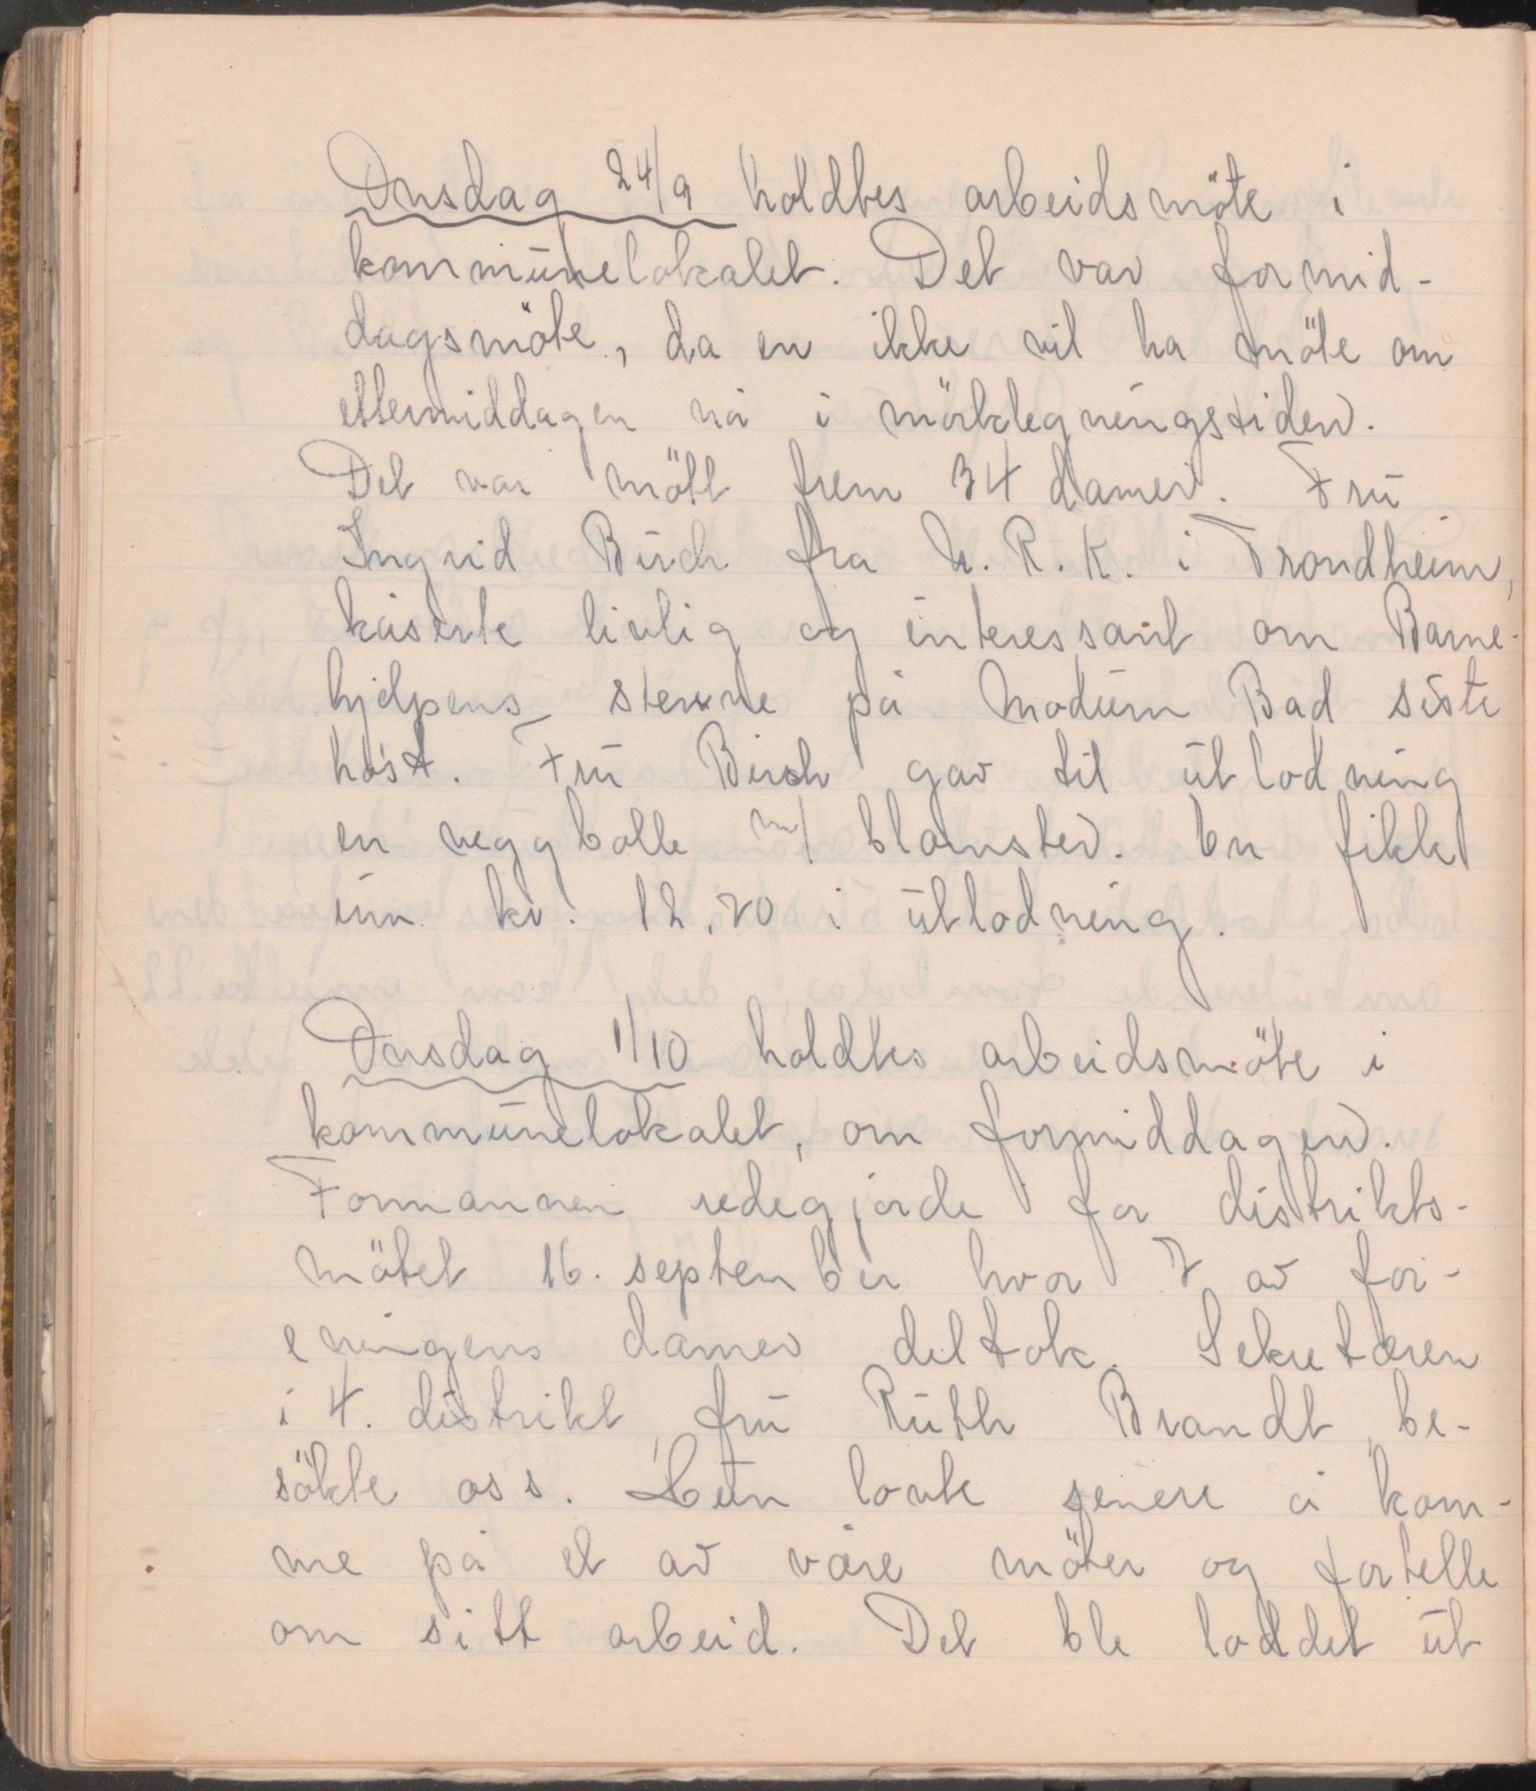 Onsdag 24/9 holdtes arbeidsmöte i
kommunelokalet. Det var formid-
dagsmöte, da en ikke vil ha möte om
ettermiddagen nå i mörklegningstiden.
Det var mött frem 34 damer. Fru
Ingrid Birch fra N.R.K. i Trondheim,
kåserte livlig og interessant om Barne-
hjelpens stevne på Modum Bad siste
höst. Fru Birch gav til utlodning
en veggbolle m/ blomster. En fikk
inn kr. 12,70 i utlodning.
Onsdag 1/10 holdtes arbeidsmöte i
kommunelokalet, om formiddagen.
Formannen redegjorde for distrikts-
mötet 16. september hvor 7 av for-
eningens damer deltok. Sekretæren
i 4. distrikt, fru Ruth Brandt be-
sökte oss. Hun lovte senere å kom-
me på et av våre möter og fortelle
om sitt arbeid. Det ble loddet ut